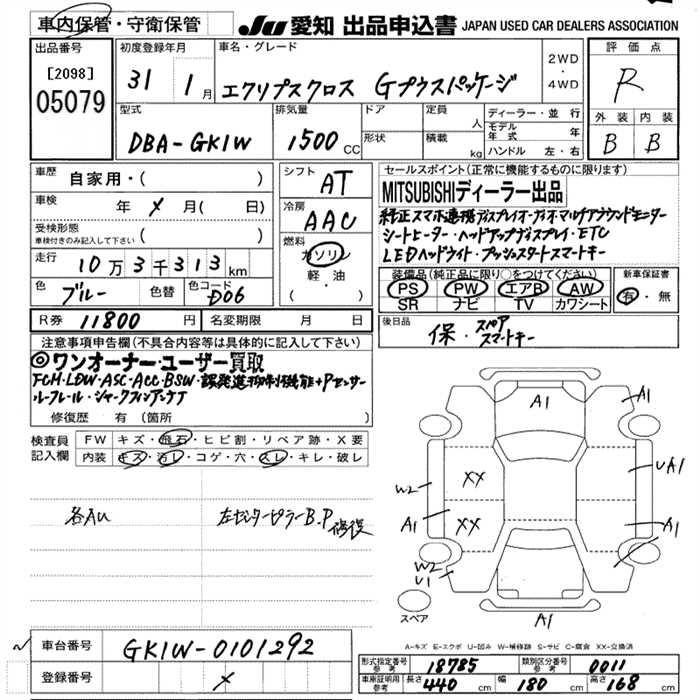 車内保管・守衛保管
JU 愛知 出品申込書 JAPAN USED CAR DEALERS ASSOCIATION
出品番号
[2098]
05079
初度登録年月
31 1月
車名・グレード
エクリプスクロス Gプラスパッケージ
2WD
・
4WD
評価点
R
外装 内装
B B
型式
DBA-GK1W
排気量
1500 CC
ドア
形状
定員 人
積載 kg
ディーラー・並行
モデル年式 年
ハンドル 左・右
車歴 自家用・( )
車検 年 メ 月( 日)
受検形態
車検付きのみ記入して下さい ( )
走行 10万3千313km
色 ブルー 色替 色コード D06
シフト AT
冷房 AAC
燃料 ガソリン
軽・油
( )
R券 11800 円 名変期限 月 日
セールスポイント(正常に機能するものに限ります)
MITSUBISHIディーラー出品
純正スマホ連携ディスプレイオーディオ・マルチアラウンドモニター
シートヒーター・ヘッドアップディスプレイ・ETC
LEDヘッドライト・プッシュスタートスマートキー
装備品(純正品に限り○をつけてください)
PS PW エアB AW
SR ナビ TV カワシート
新車保証書
有・無
後日品
保・スペア
スマートキー
注意事項申告欄(不具合内容等は具体的に記入して下さい)
◎ワンオーナー・ユーザー買取
FCM・LDW・ASC・ACC・BSW・誤発進抑制機能+Pセンサー
ルーフレール・シャークフィンアンテナ
修復歴 有(箇所 )
検査員記入欄
FW キズ・飛石・ヒビ割・リペア跡・X要
内装 キズ・汚レ・コゲ・穴・スレ・キレ・破レ
各AU 左センターピラーB.P修復
A1
A1
UA1
XX
W2
XX
A1
A1
W2
U1
A1
スペア
A-キズ E-エクボ U-凹み W-補修跡 S-サビ C-腐食 XX-交換済
車台番号 GK1W-0101292
登録番号 メ
形式指定番号参考 18785 類別区分番号参考 0011
車庫証明用参考 長さ 440 cm 幅 180 cm 高さ 168 cm